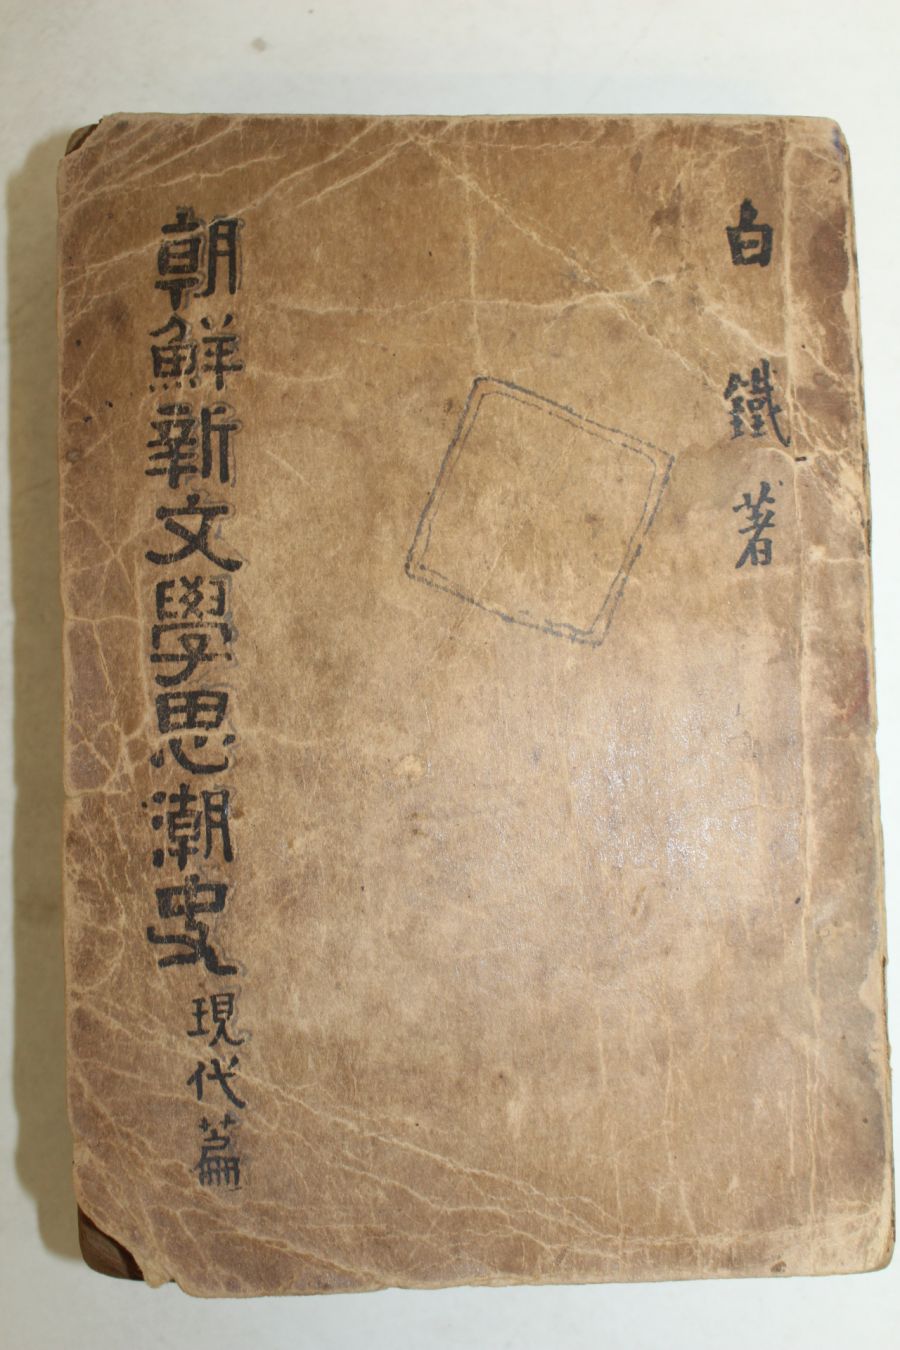 白鐵著
朝鮮新文學思潮史 現代篇